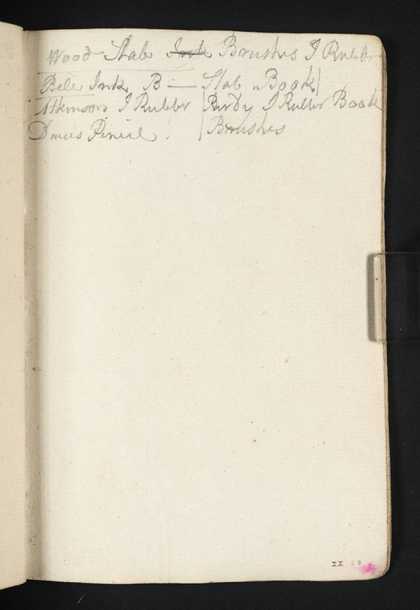 Wood Slab Ink Brushes I Rubber
Bele Ink B— Slab Book
Atkinsons I Rubber Purdy I Rubber Book
Pencil. Brushes
XX